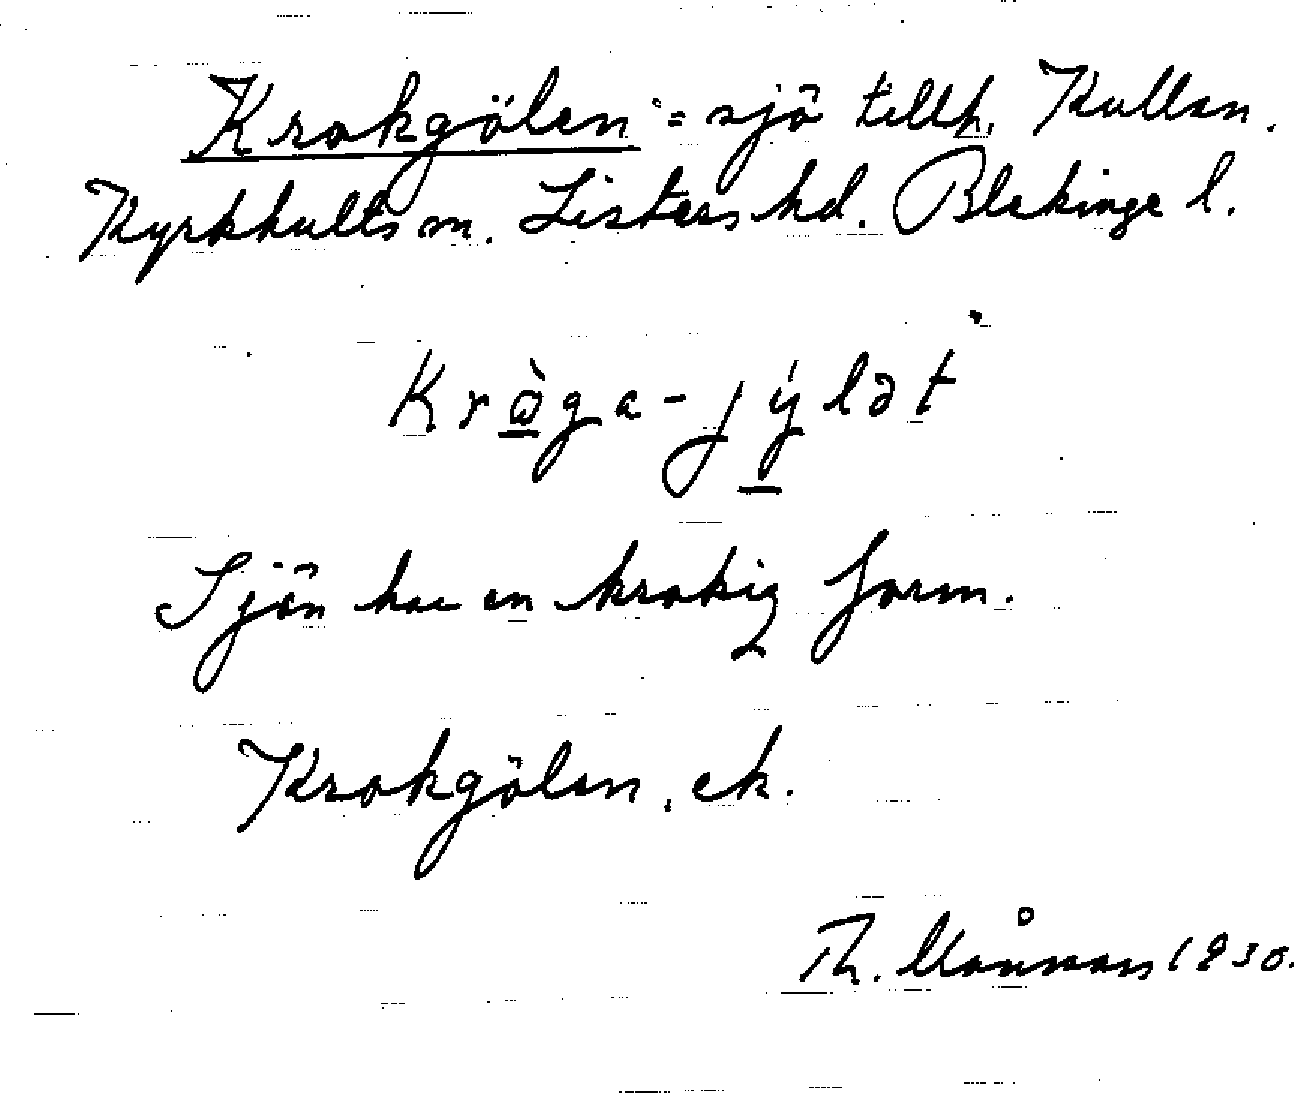 Krokgölen = sjö tillh. Kullan.
Kyrkhults sn. Listers hd. Blekinge l.
Krò̲ga-jý̲lət
Sjön har en krokig form.
Krokgölen, ek.
Th. Månsson 1930.